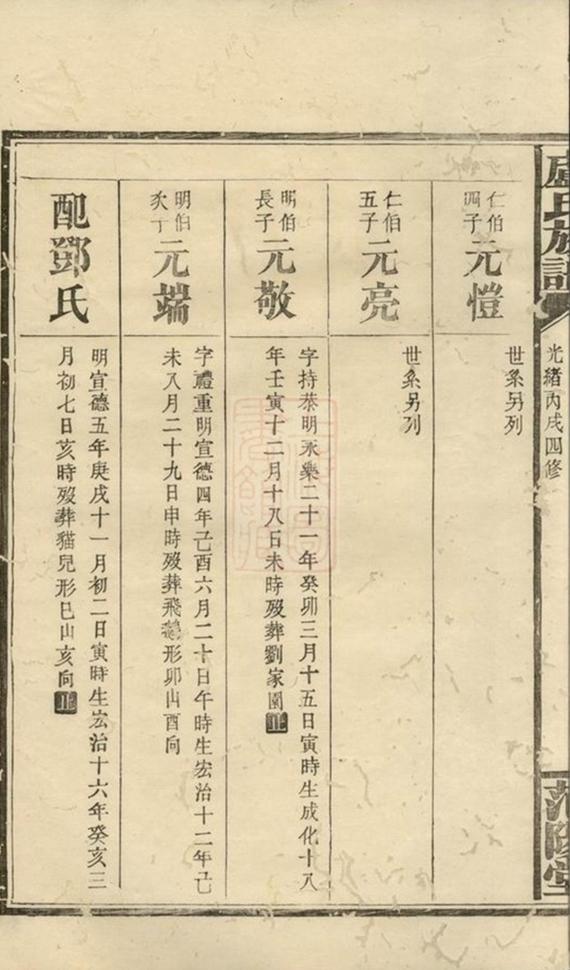 盧氏族譜
光緒丙戌四修
范陽堂
仁伯四子
元愷
世系另列
仁伯五子
元亮
世系另列
明伯長子
元敬
字持恭明永樂二十一年癸卯三月十五日寅時生成化十八
年壬寅十二月十八日未時歿葬劉家園止
明伯次子
元端
字禮重明宣德四年己酉六月二十日午時生宏治十二年己
未八月二十九日申時歿葬飛鵝形卯山酉向
配鄧氏
明宣德五年庚戌十一月初二日寅時生宏治十六年癸亥三
月初七日亥時歿葬貓兒形巳山亥向止